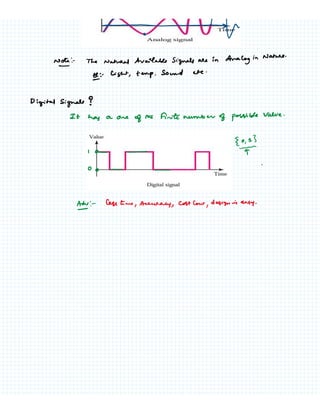 Time
Analog signal
Note:- The Natural Available Signals are in Analog in Nature.
Light, temp, Sound etc.
Digital Signals?
It has a one of the finite number of possible Value.
Value
{0,1}
1
0
Time
Digital signal
Adv:- Less time, Accuracy, Cost low, design is easy.